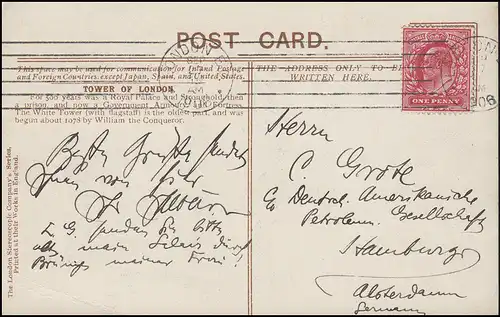 POST CARD.
This space may be used for communication for Inland Postage
and Foreign Countries, except Japan, Spain, and United States.
THE ADDRESS ONLY TO BE
WRITTEN HERE.
TOWER OF LONDON.
For 500 years was a Royal Palace and Stronghold, then
a prison, and now a Government Armoury and Fortress.
The White Tower (with flagstaff) is the oldest part, and was
begun about 1078 by William the Conqueror.
The London Stereoscopic Company's Series.
Printed at their Works in England.
LONDON
AM
06
ONE PENNY
Beste Grüße sendet
Ihnen von hier
Ihr
Z.G. senden Sie bitte
alles mein
meiner Frau!
Herrn
C. Grote
Deutsch Amerikanische
Petroleum Gesellschaft
Hamburg
Alsterdamm
Germany